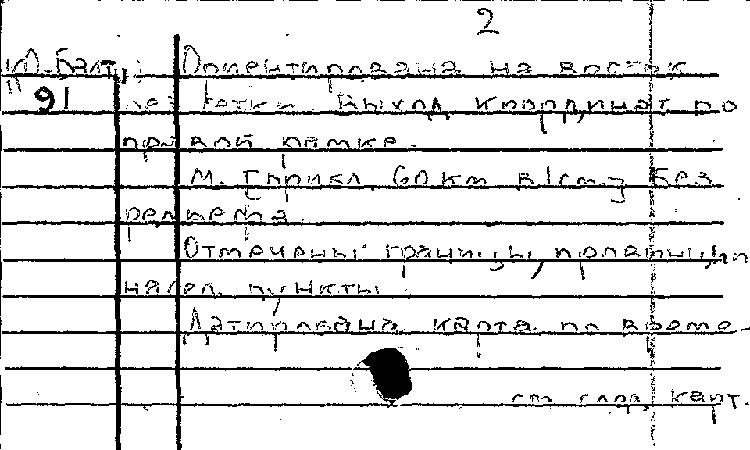 2
Ю. Балт. Ориентирована на восток
91 без сетки. Выход координат по
правой рамке.
М. [прибл. 60 км в 1 см.] Без
рельефа.
Отмечены границы, проливы,
насел. пункты
Датирована карта по време-
см. след. карт.